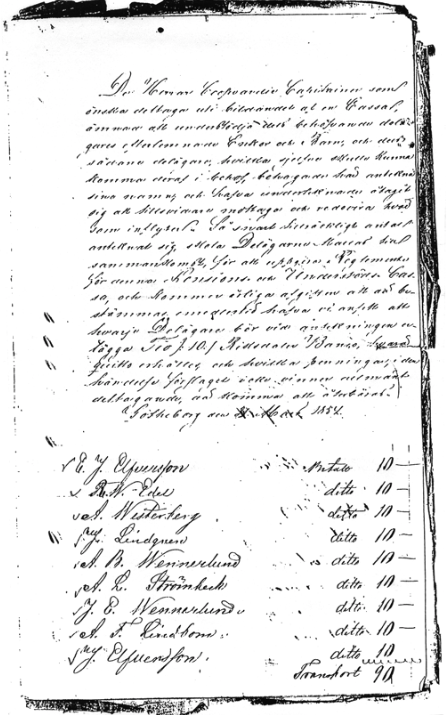 De Herrar Coopvardie Capitainer som
önska deltaga uti bildandet af en Cassa,
ämnad att understödja dels behöfvande delä-
gares efterlemnade Enkor och Barn, och dels
sådane delägare, hvilka sjelfve skulle kunna
komma deraf i behof, behagade här anteckna
sina namn, och hafva undertecknade åtagit
sig att tillsvidare mottaga och redovisa hvad
som inflyter. Så snart tillräckligt antal
antecknat sig, skola Delägarne kallas till
sammankomst, för att uppgöra Reglemente
för denna Pensions och Understöds Cas-
sa, och kommer årliga afgiften att då be-
stämmas, emedlertid hafva vi ansett att
hvarje Delägare bör vid anteckningen er-
lägga Tio /:10:/ Riksdaler Banco, hvarå
qvitto erhålles, och hvilka penningar, i den
händelse förslaget icke vinner allmänt
deltagande, då komma att återbäras.
Götheborg den 1854.
E. J. Elfverson Betalt 10 —
R. W. Edel ditto 10 —
A. Westerberg ditto 10 —
J. Lindgren ditto 10 —
A. B. Wennerlund ditto 10 —
A. L. Strömbeck ditto 10 —
J. E. Wennerlund ditto 10 —
A. F. Lindbom ditto 10 —
J. Elfversson ditto 10
Transport 90